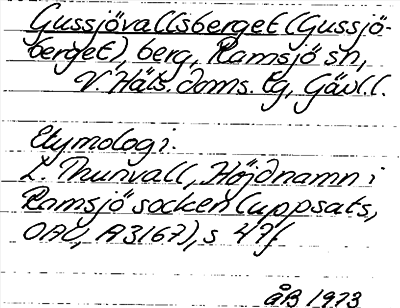 Gussjövallsberget (Gussjö-
berget), berg, Ramsjö sn,
V. Häls. doms. tg, Gävl. l.
Etymologi.
L. Thunvall, Höjdnamn i
Ramsjö socken (uppsats,
OAU, A3167), s 47f.
ÅB 1973